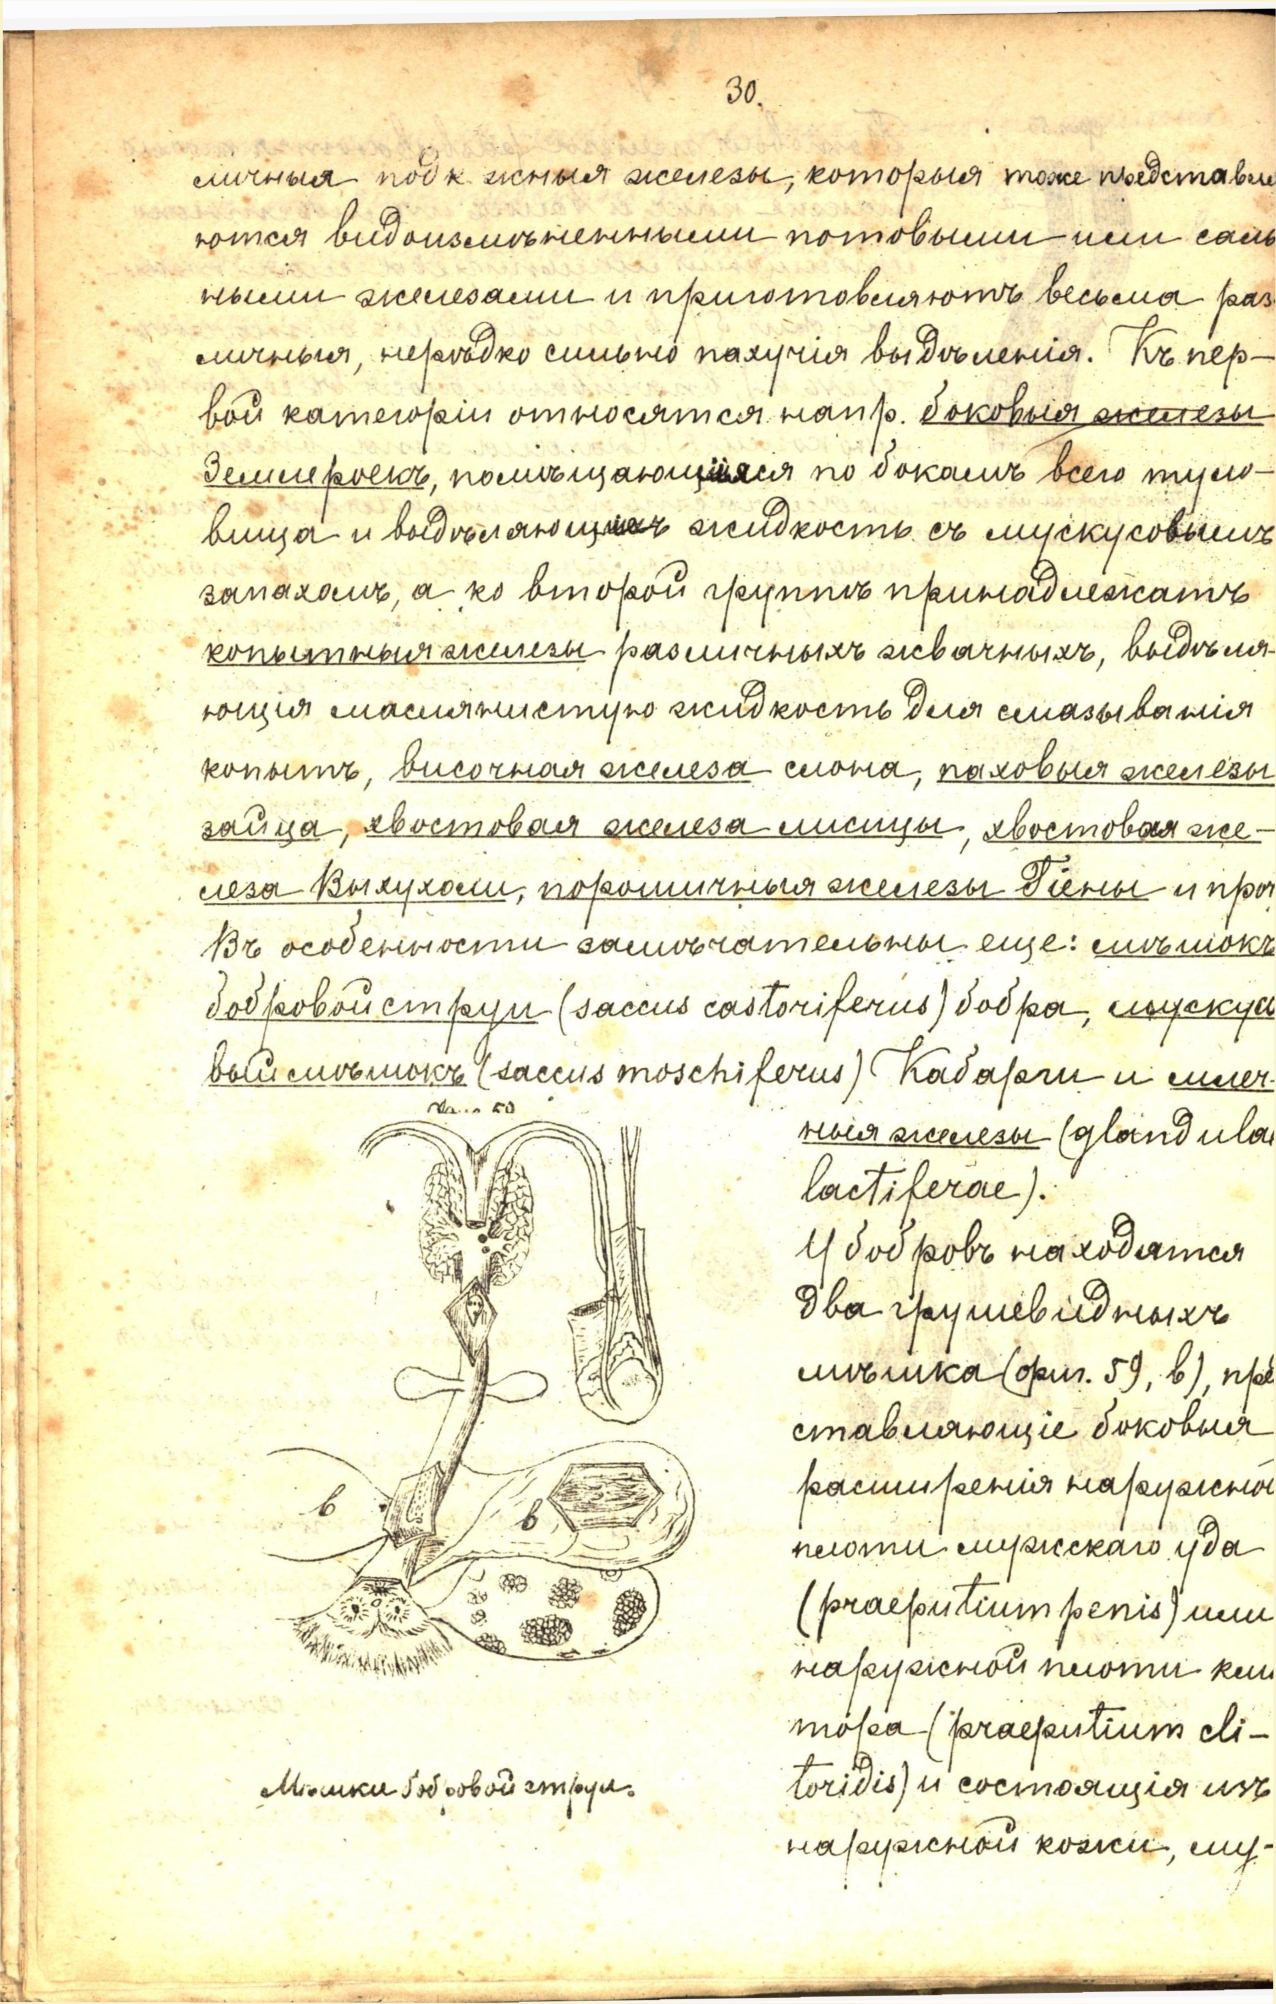 30.
личныя подк жныя железы, которыя тоже представля
ются видоизмѣненными потовыми или саль
ными железами и приготовляютъ весьма раз
личныя, нерѣдко сильно пахучія выдѣленія. Къ пер-
вой категоріи относятся напр. боковыя железы
Землероекъ, помѣщающіяся по бокамъ всего туло-
вища и выдѣляющихъ жидкость съ мускусовымъ
запахомъ, а ко второй группѣ принадлежатъ
копытныя железы различныхъ жвачныхъ, выдѣля-
ющія маслянистую жидкость для смазыванія
копытъ, височная железа слона, паховыя железы
зайца, хвостовая железа лисицы, хвостовая же-
леза Выхухоли, порошичныя железы Гіены и проч
Въ особенности замѣчательны еще: мѣшокъ
бобровой струи (saccus castoriferus) бобра, мускусо
вый мѣшокъ (saccus moschiferus) Кабарги и млеч-
ныя железы (glandulae
lactiferae).
У бобровъ находятся
два грушевидныхъ
мѣшка (фиг. 59, b), пред
ставляющіе боковыя
расширенія наружной
плоти мужскаго уда
(praeputium penis) или
наружной плоти кли
тора (praeputium cli-
toridis) и состоящія изъ
наружной кожи, му-
59
b
b
Мѣшки бобровой струи.